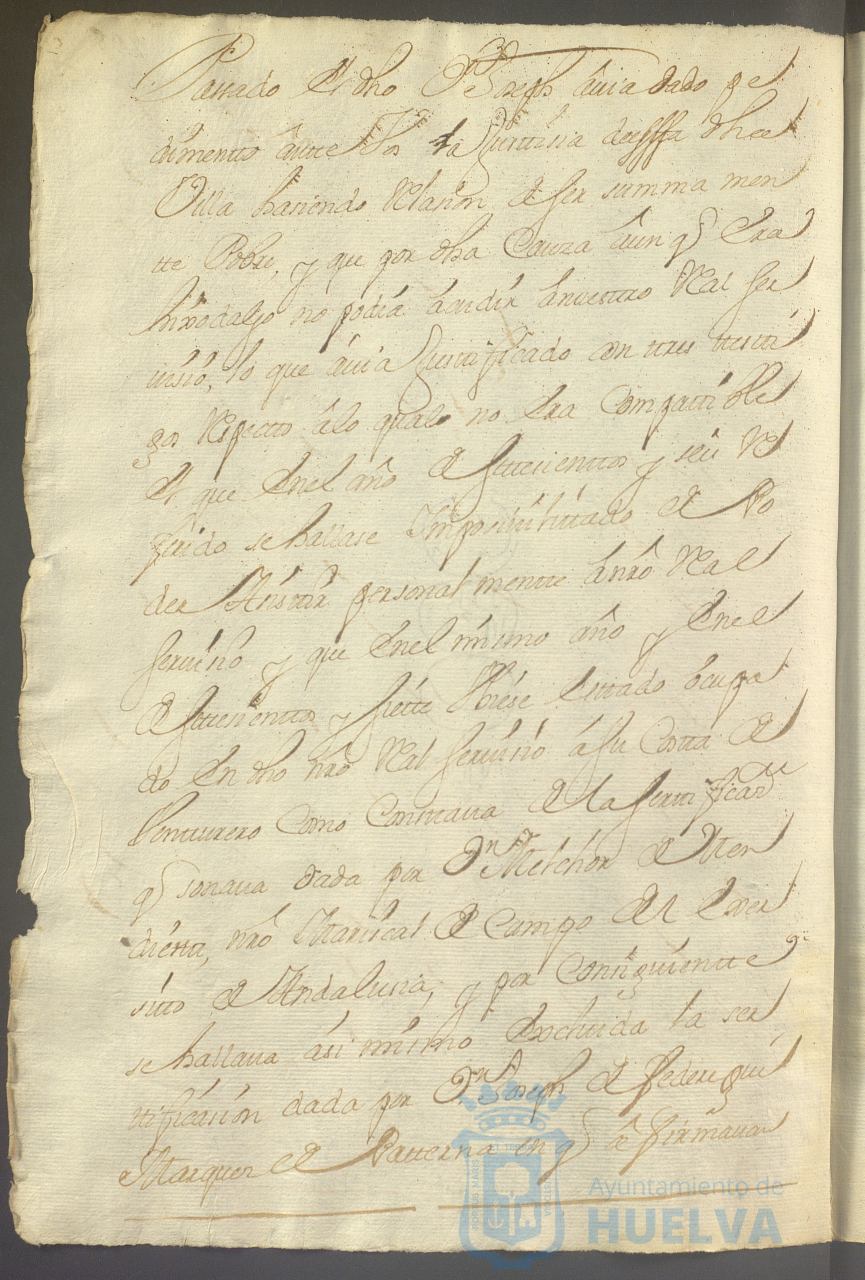 Passado el dho Dn Joseph avia dado pe
dimento ante Vos la Justisia de essa dha
Villa hasiendo relasion de ser summa men
tte Pobre, y que por dha Cauza aun qe Era
hijodalgo no podia acudir a nuestro Real ser
visio, lo que avia Justificado con tres testi
gos respecto a lo qual no era Compattible
el que en el año de settesienttos y seis re
ferido se hallase Impositilitado de Po
der Asistir personal mentte a nro Real
servisio y que en el mismo año y en el
de settesienttos y siette Vbiese Estado Ocupa
do en dho nro Real servisio a su Costa de
Venturero Como Constava de la sertificasn
qe sonava dada por Dn Melchor de Men
dietta, nro Mariscal de Campo del exer
sitto de Andalusia, y por Consiguientte
se hallava asi mismo excluida la ser
tificasion dada por Dn Joseph de Federigui
Marques de Patterna en qe afirmava
Ayuntamiento de
HUELVA